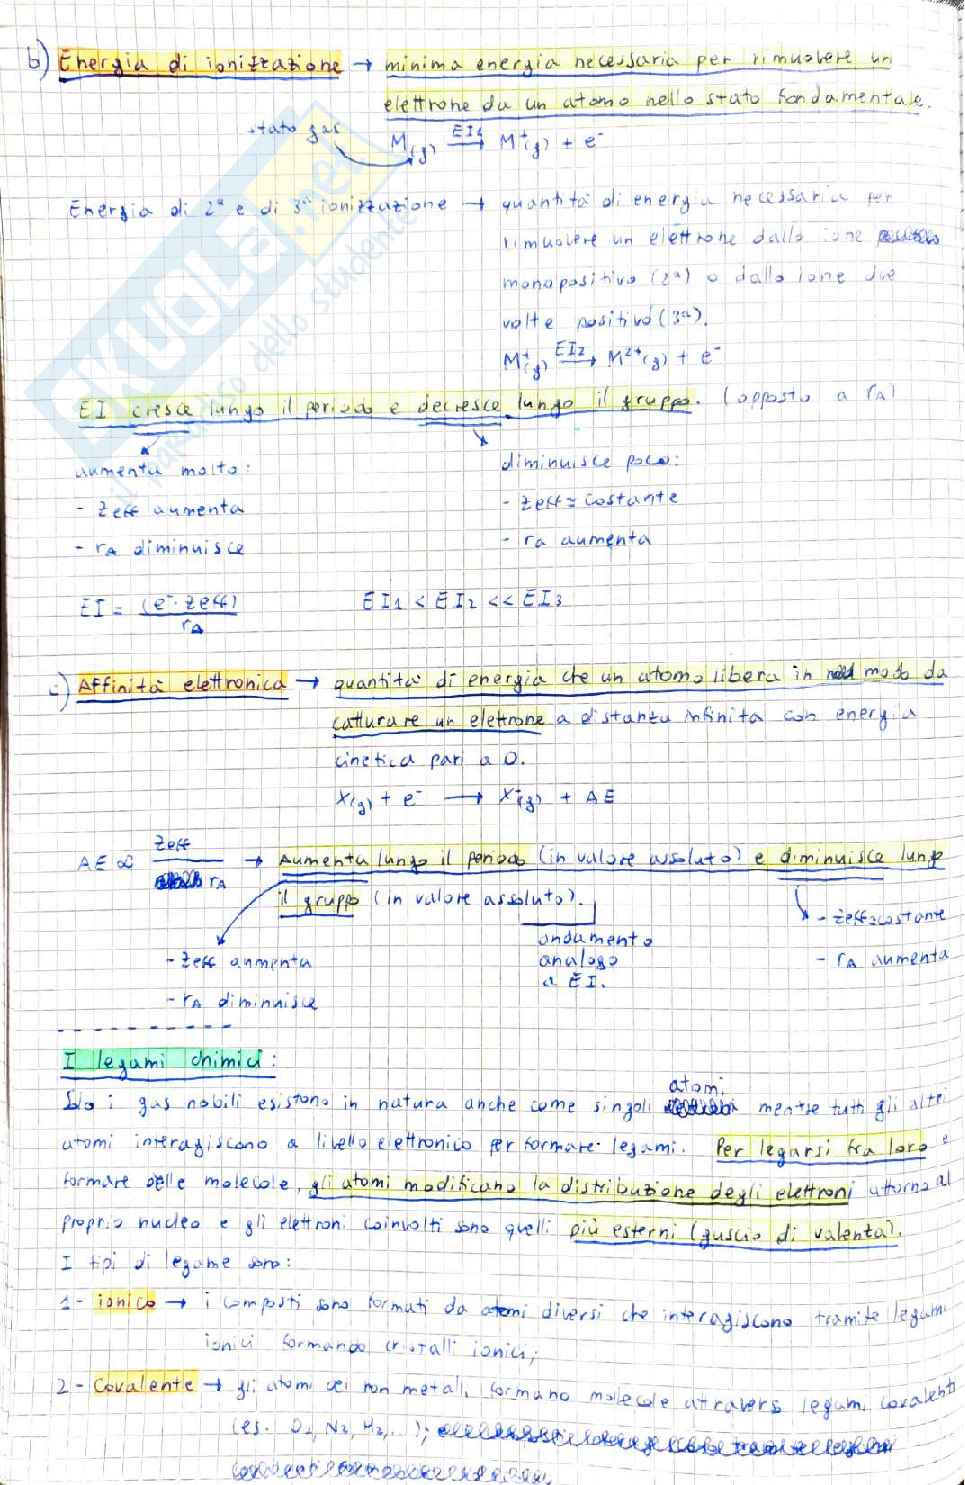 b) Energia di ionizzazione → minima energia necessaria per rimuovere un
elettrone da un atomo nello stato fondamentale.
stato gas
M(g) EI1→ M⁺(g) + e⁻
Energia di 2ª e di 3ª ionizzazione → quantità di energia necessaria per
rimuovere un elettrone dallo ione
monopositivo (2ª) o dallo ione due
volte positivo (3ª).
M⁺(g) EI2→ M²⁺(g) + e⁻
EI cresce lungo il periodo e decresce lungo il gruppo. (opposto a rA)
aumenta molto:
- Zeff aumenta
- rA diminuisce
diminuisce poco:
- Zeff ≃ costante
- rA aumenta
EI = (e⁻ · Zeff) / rA
EI1 < EI2 << EI3
c) Affinità elettronica → quantità di energia che un atomo libera in modo da
catturare un elettrone a distanza infinita con energia
cinetica pari a 0.
X(g) + e⁻ → X⁻(g) + AE
AE ∝ Zeff / rA → Aumenta lungo il periodo (in valore assoluto) e diminuisce lungo
il gruppo (in valore assoluto).
- Zeff aumenta
- rA diminuisce
andamento
analogo
a EI.
- Zeff≃costante
- rA aumenta
I legami chimici:
Solo i gas nobili esistono in natura anche come singoli atomi mentre tutti gli altri
atomi interagiscono a livello elettronico per formare legami. Per legarsi fra loro e
formare delle molecole, gli atomi modificano la distribuzione degli elettroni attorno al
proprio nucleo e gli elettroni coinvolti sono quelli più esterni (guscio di valenza).
I tipi di legame sono:
1- ionico → i composti sono formati da atomi diversi che interagiscono tramite legami
ionici formando cristalli ionici;
2- Covalente → gli atomi dei non metalli formano molecole attraverso legami covalenti
(es. O2, N2, H2, ..);
SKUOLA.net
il paradiso dello studente